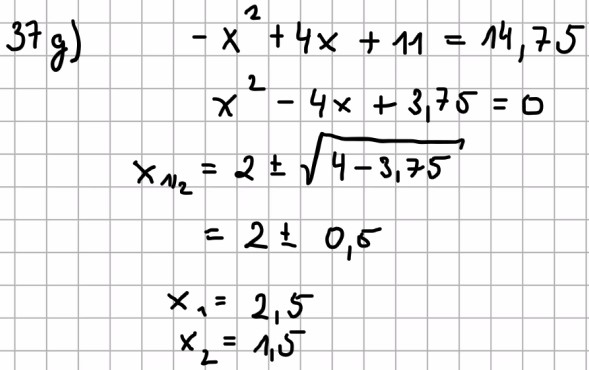 37g) -x² + 4x + 11 = 14,75
x² - 4x + 3,75 = 0
x₁/₂ = 2 ± √(4 - 3,75)
= 2 ± 0,5
x₁ = 2,5
x₂ = 1,5